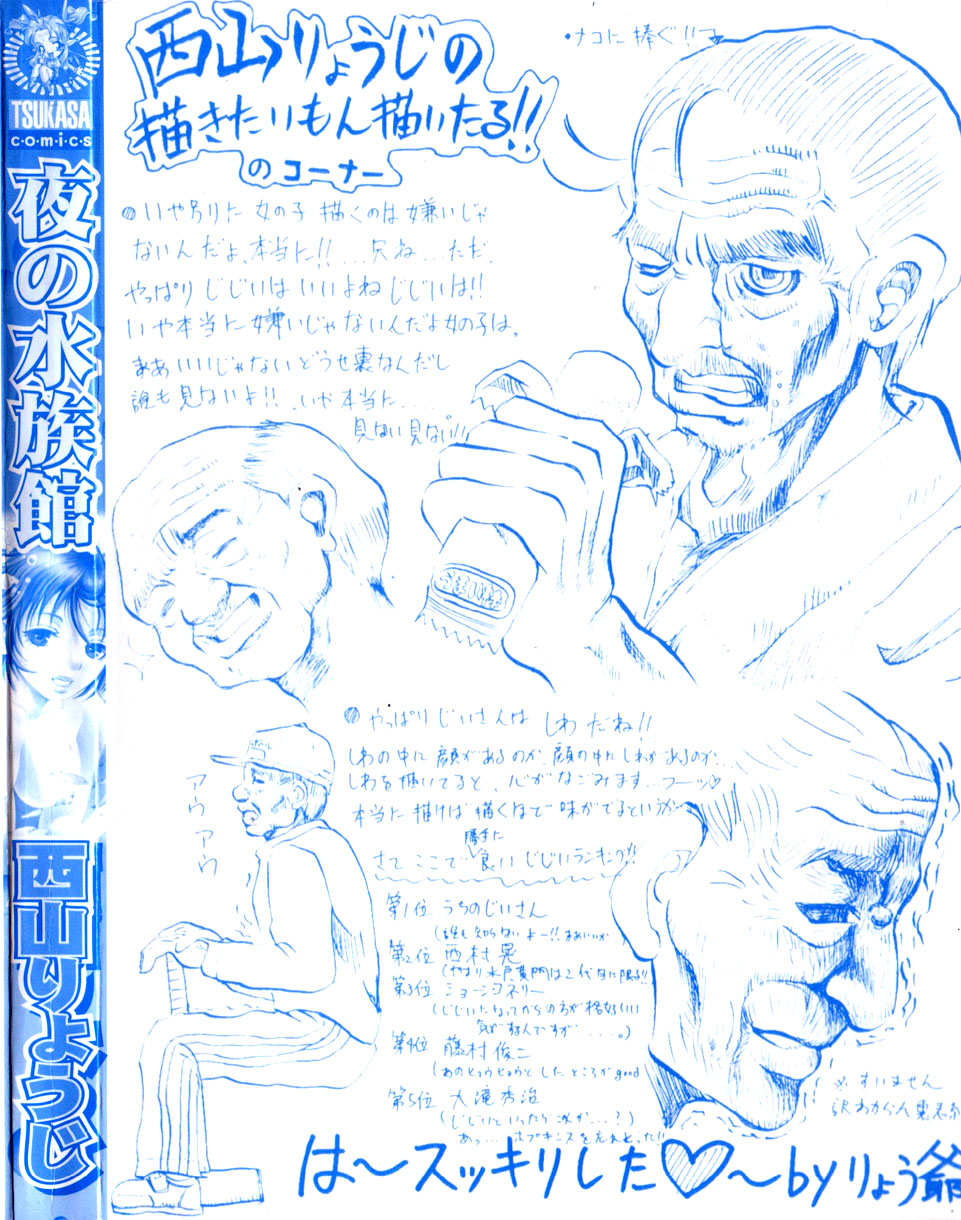 TSUKASA
COMICS
夜の水族館
西山りょうじ
西山りょうじの
描きたいもん描いたる!!
のコーナー
・ナコに捧ぐ!!
いや別に 女の子 描くのは 嫌いじゃ
ないんだよ、本当に!! ...只ね...ただ、
やっぱり じじいは いいよね じじいは!!
いや本当に 嫌いじゃないんだよ女の子は。
まあいいじゃない どうせ裏なんだし
誰も見ないよ!! いや本当に.....
見ない見ない!!
やっぱり じいさんは しわ だね!!
しわの中に 顔があるのか、顔の中に しわがあるのか...
しわを描いてると、心がなごみます...フーッ♡
本当に描けば描くほど味がでるというか
勝手に
さて ここで 良い じじいランキング!!
アウ アウ
第1位 うちのじいさん
(誰も知らないよー!! まあいいか
第2位 西村晃
(やはり水戸黄門は2代目に限る!!
第3位 ショーンコネリー
(じじいになってからの方が格好いい
気がするんですが.....。)
第4位 藤村俊二
(あのヒョウヒョウと したところがgood
第5位 大滝秀治
(じじいといったら この人か...?)
あっ... ホプキンスを忘れとった!!
※ すいません
訳わからん裏表紙
は〜スッキリした♡〜by りょう爺